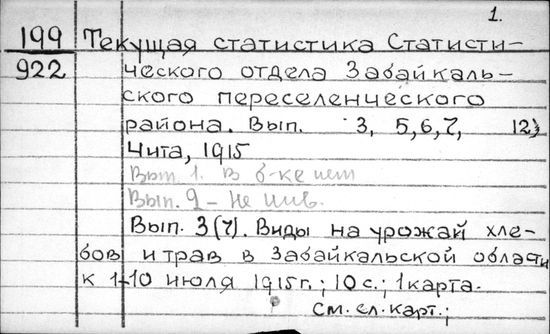 1.
199 Текущая статистика Статисти-
922 ческого отдела Забайкаль-
ского переселенческого
района. Вып. 3, 5,6,7, 12;
Чита, 1915
Вып. 1. в б-ке нет
Вып. 2 - не инв.
Вып. 3(7). Виды на урожай хле-
бов и трав в Забайкальской области
к 1-10 июля 1915 г.; 10 с.; 1 карта.
См. сл. карт.;